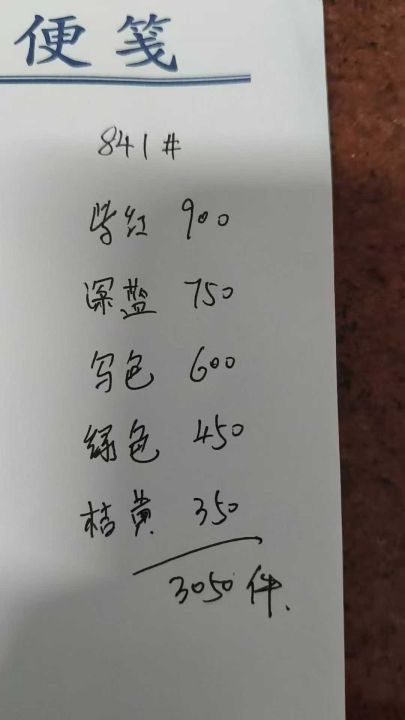 便笺
841#
紫红 900
深蓝 750
写色 600
绿色 450
桔黄 350
3050件.